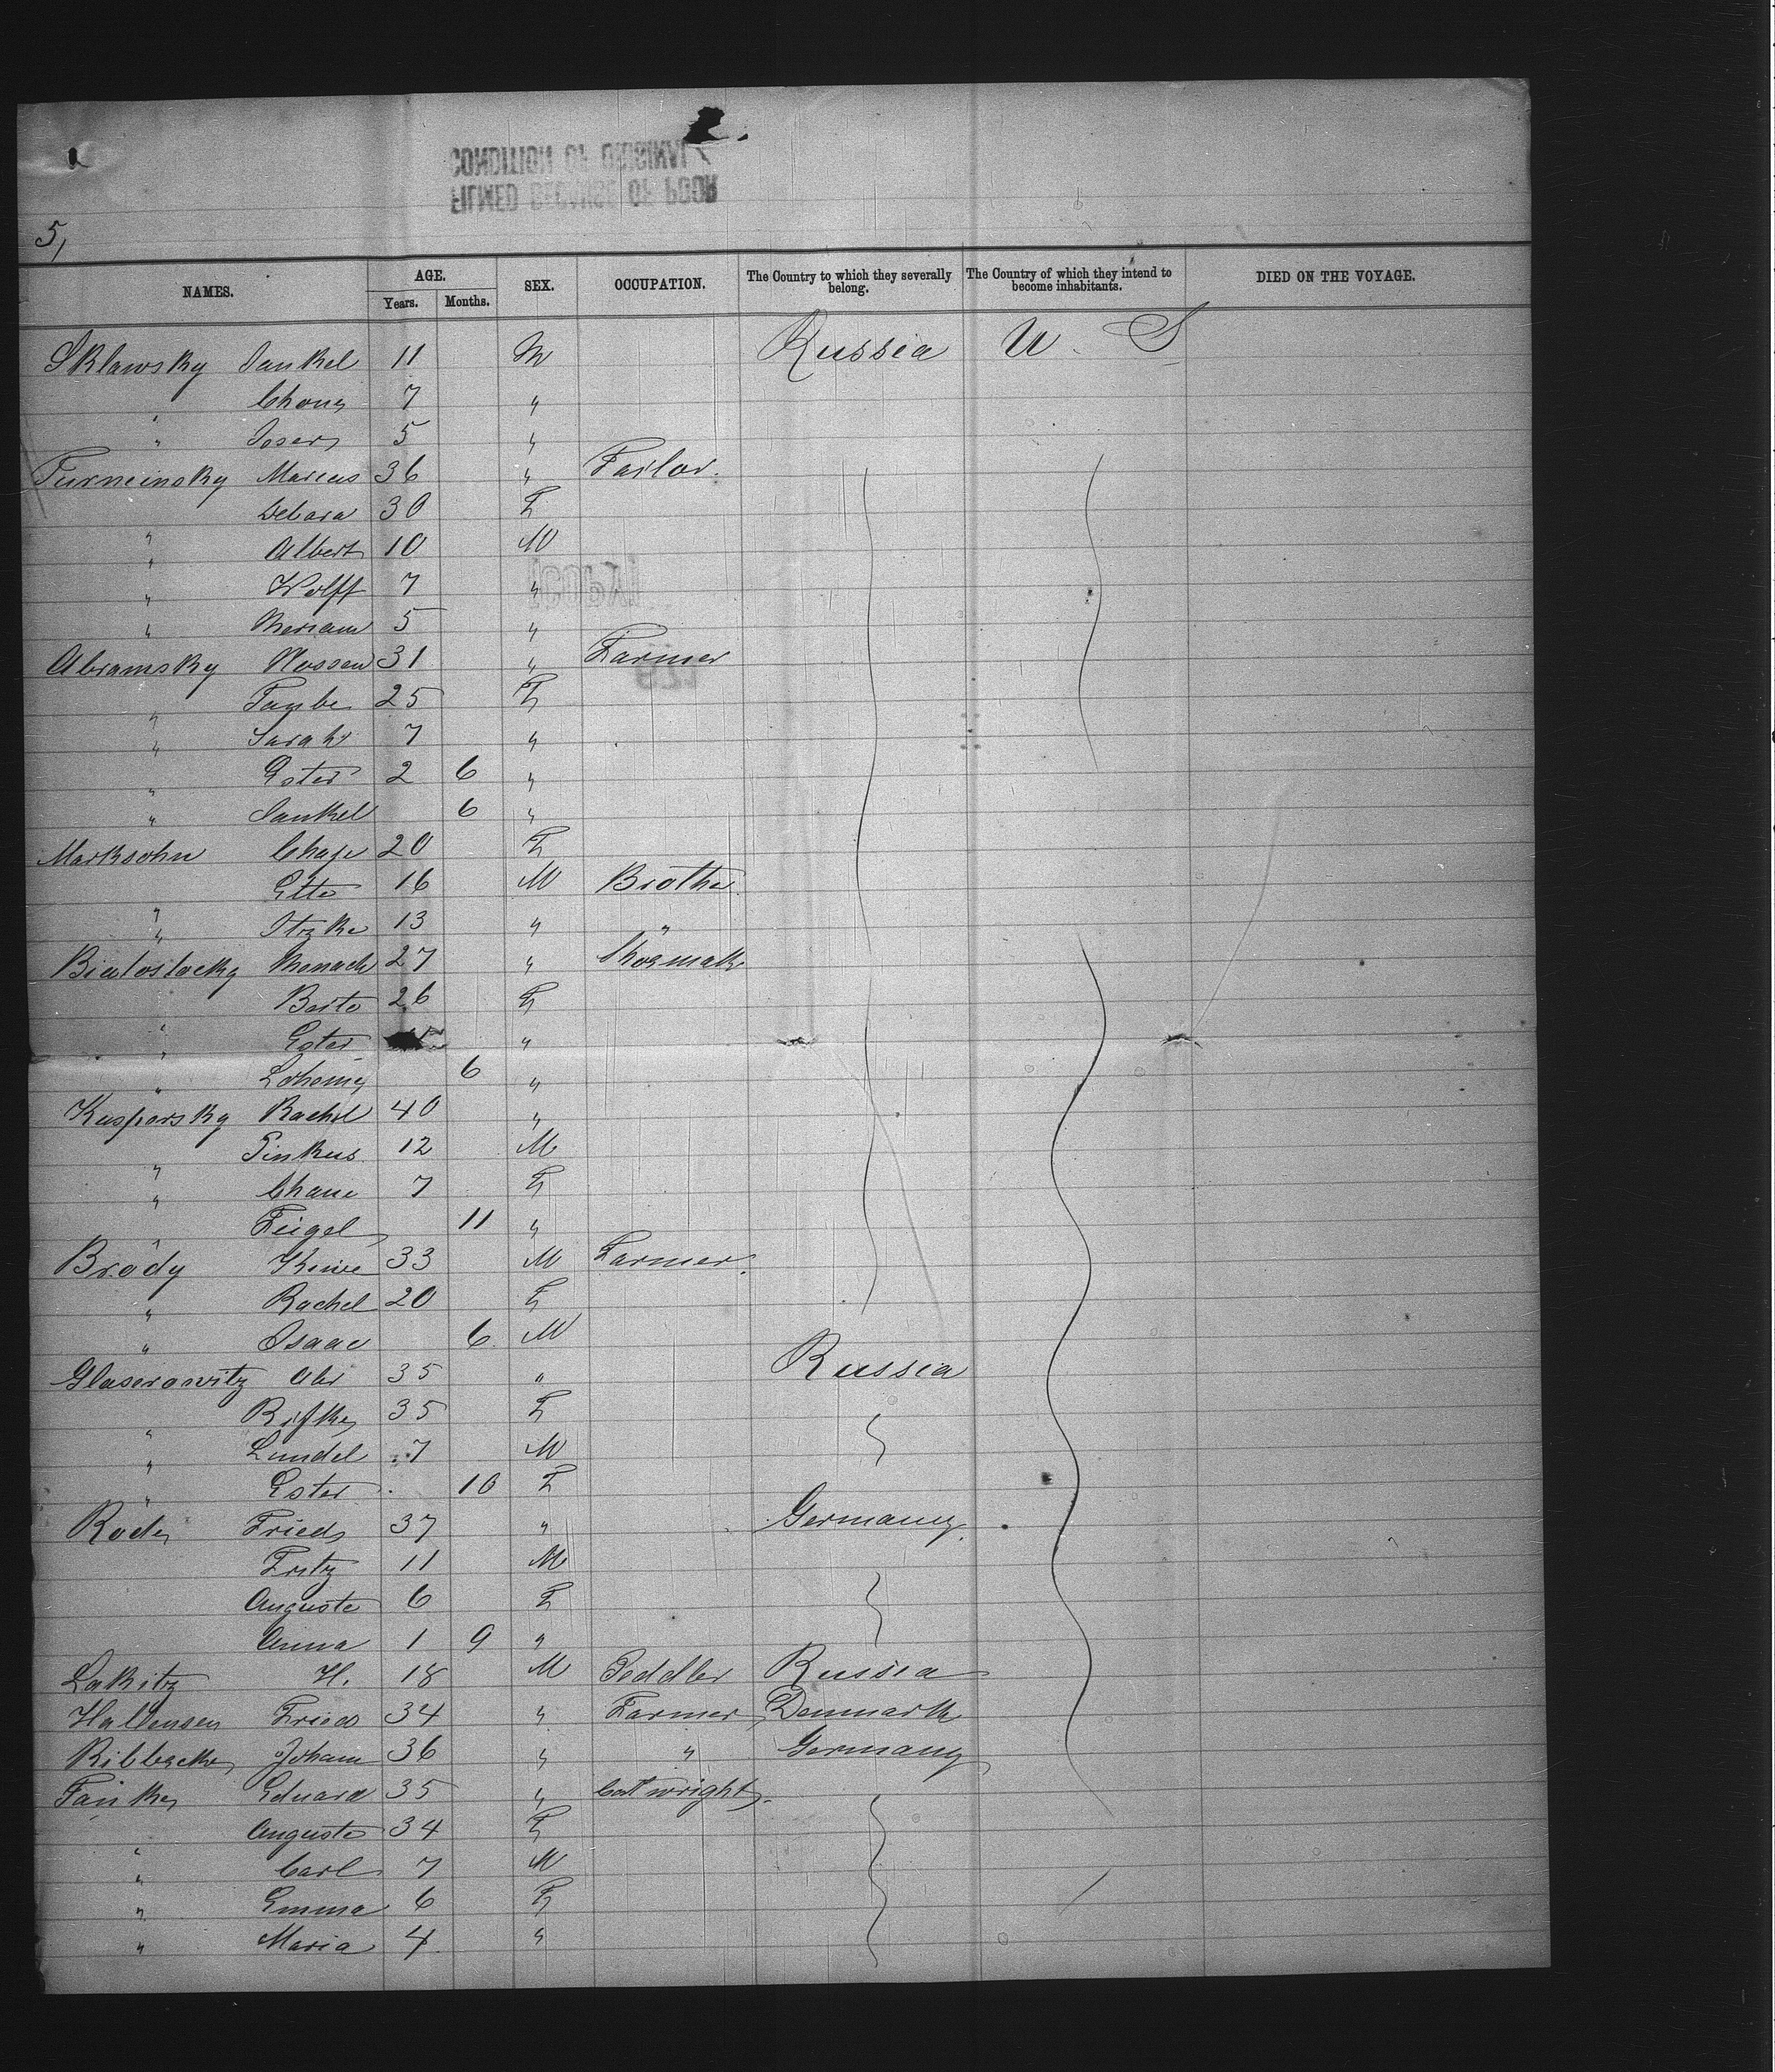 2.
CONDITION OF ORIGINAL
FILMED BECAUSE OF POOR
5,
NAMES. AGE. Years. Months. SEX. OCCUPATION. The Country to which they severally belong. The Country of which they intend to become inhabitants. DIED ON THE VOYAGE.
Sklawsky Jankel 11 M Russia U. S
" 7 "
" 5 "
Turmeinsky Marcus 36 " Tailor.
" Debora 30 F
" Albert 10 M
" Wolff 7 "
" Meriam 5 "
Abramsky Nossen 31 " Farmer
" Taube 25 F
" Sarah 7 "
" Ester 2 6 "
" Jankel 6 "
Marksohn Chaje 20 F
" Ette 16 M Brother
" Itzke 13 " "
Bialostocky Monach 27 "
" Berta 26 F
" Ester "
" 6 "
Kaspersky Rachel 40 "
" Pinkus 12 M
" Chane 7 F
" Feigel 11 "
Brody 33 M Farmer.
" Rachel 20 F
" Isaac 6 M
Glaserowitz Abr 35 " Russia
" Rifke 35 F
" Lundel 7 M
" Ester 10 F
Rode Fried 37 " Germany.
Fritz 11 M
Auguste 6 F
Anna 1 9 "
Lakitz H. 18 M Peddler Russia
Hallensen Fried 34 " Farmer Denmark
Ribbacke Johann 36 " " Germany
Fanke Eduard 35 " Cartwright.
" Auguste 34 F
" Carl 7 M
" Emma 6 F
" Maria 4 "